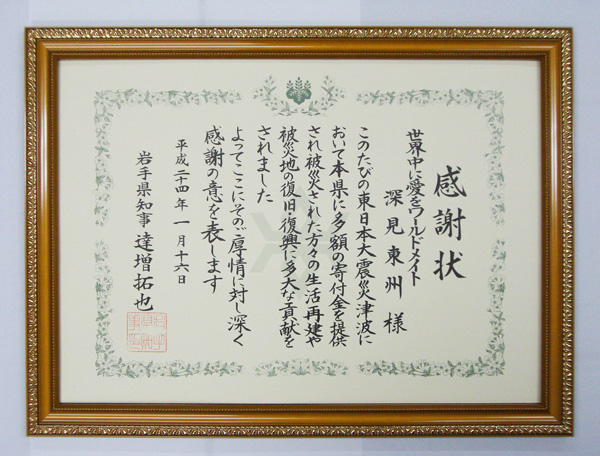 感謝状
世界中に愛をワールドメイト
深見東州様
このたびの東日本大震災津波に
おいて本県に多額の寄付金を提供
され被災された方々の生活再建や
被災地の復旧・復興に多大な貢献を
されました
よってここにそのご厚情に対し深く
感謝の意を表します
平成二十四年一月十六日
岩手県知事 達増拓也